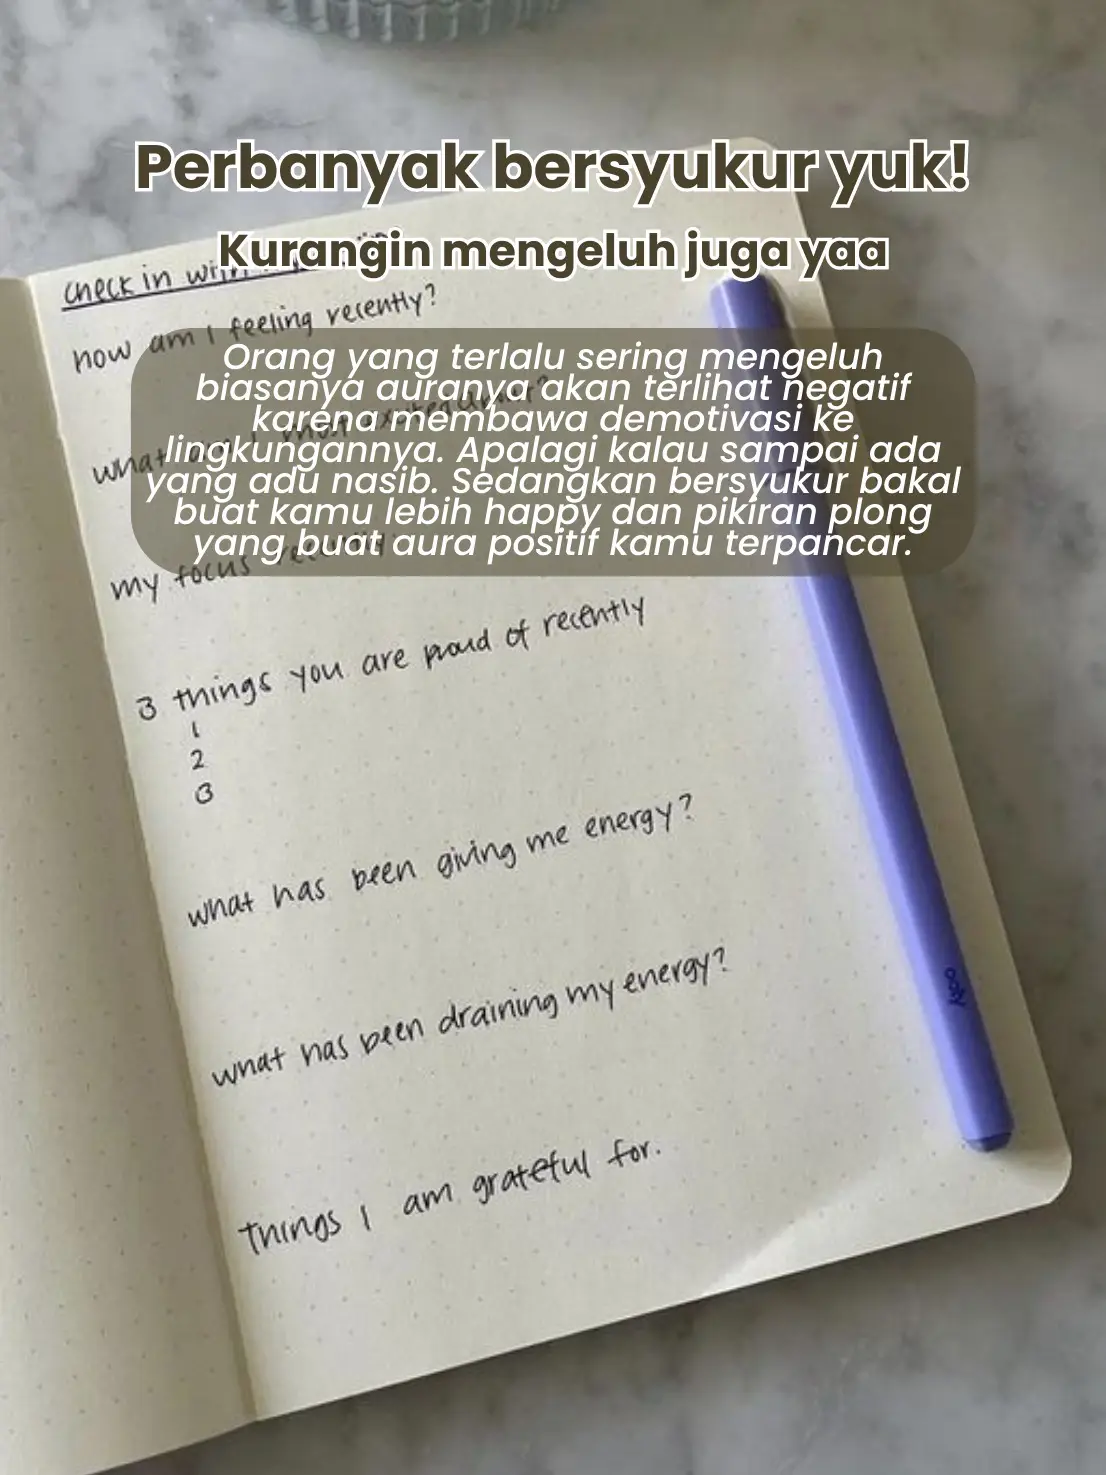 Perbanyak bersyukur yuk!
Kurangin mengeluh juga yaa
check in with
how am I feeling recently?
Orang yang terlalu sering mengeluh
biasanya auranya akan terlihat negatif
karena membawa demotivasi ke
lingkungannya. Apalagi kalau sampai ada
yang adu nasib. Sedangkan bersyukur bakal
buat kamu lebih happy dan pikiran plong
yang buat aura positif kamu terpancar.
what am I most excited about?
my focus recently
3 things you are proud of recently
1
2
3
what has been giving me energy?
what has been draining my energy?
things I am grateful for.